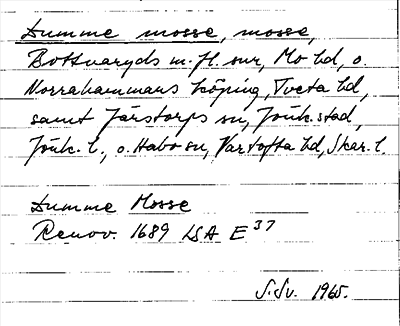 Dumme mosse, mosse,
Bottnaryds m. fl. snr, Mo hd, o.
Norrahammars köping, Tveta hd,
samt Järstorps sn, Jönk. stad,
Jönk. l., o. Habo sn, Vartofta hd, Skar. l.
Dumme Mosse
Renov. 1689 LSA E 37
S.Sv. 1965.